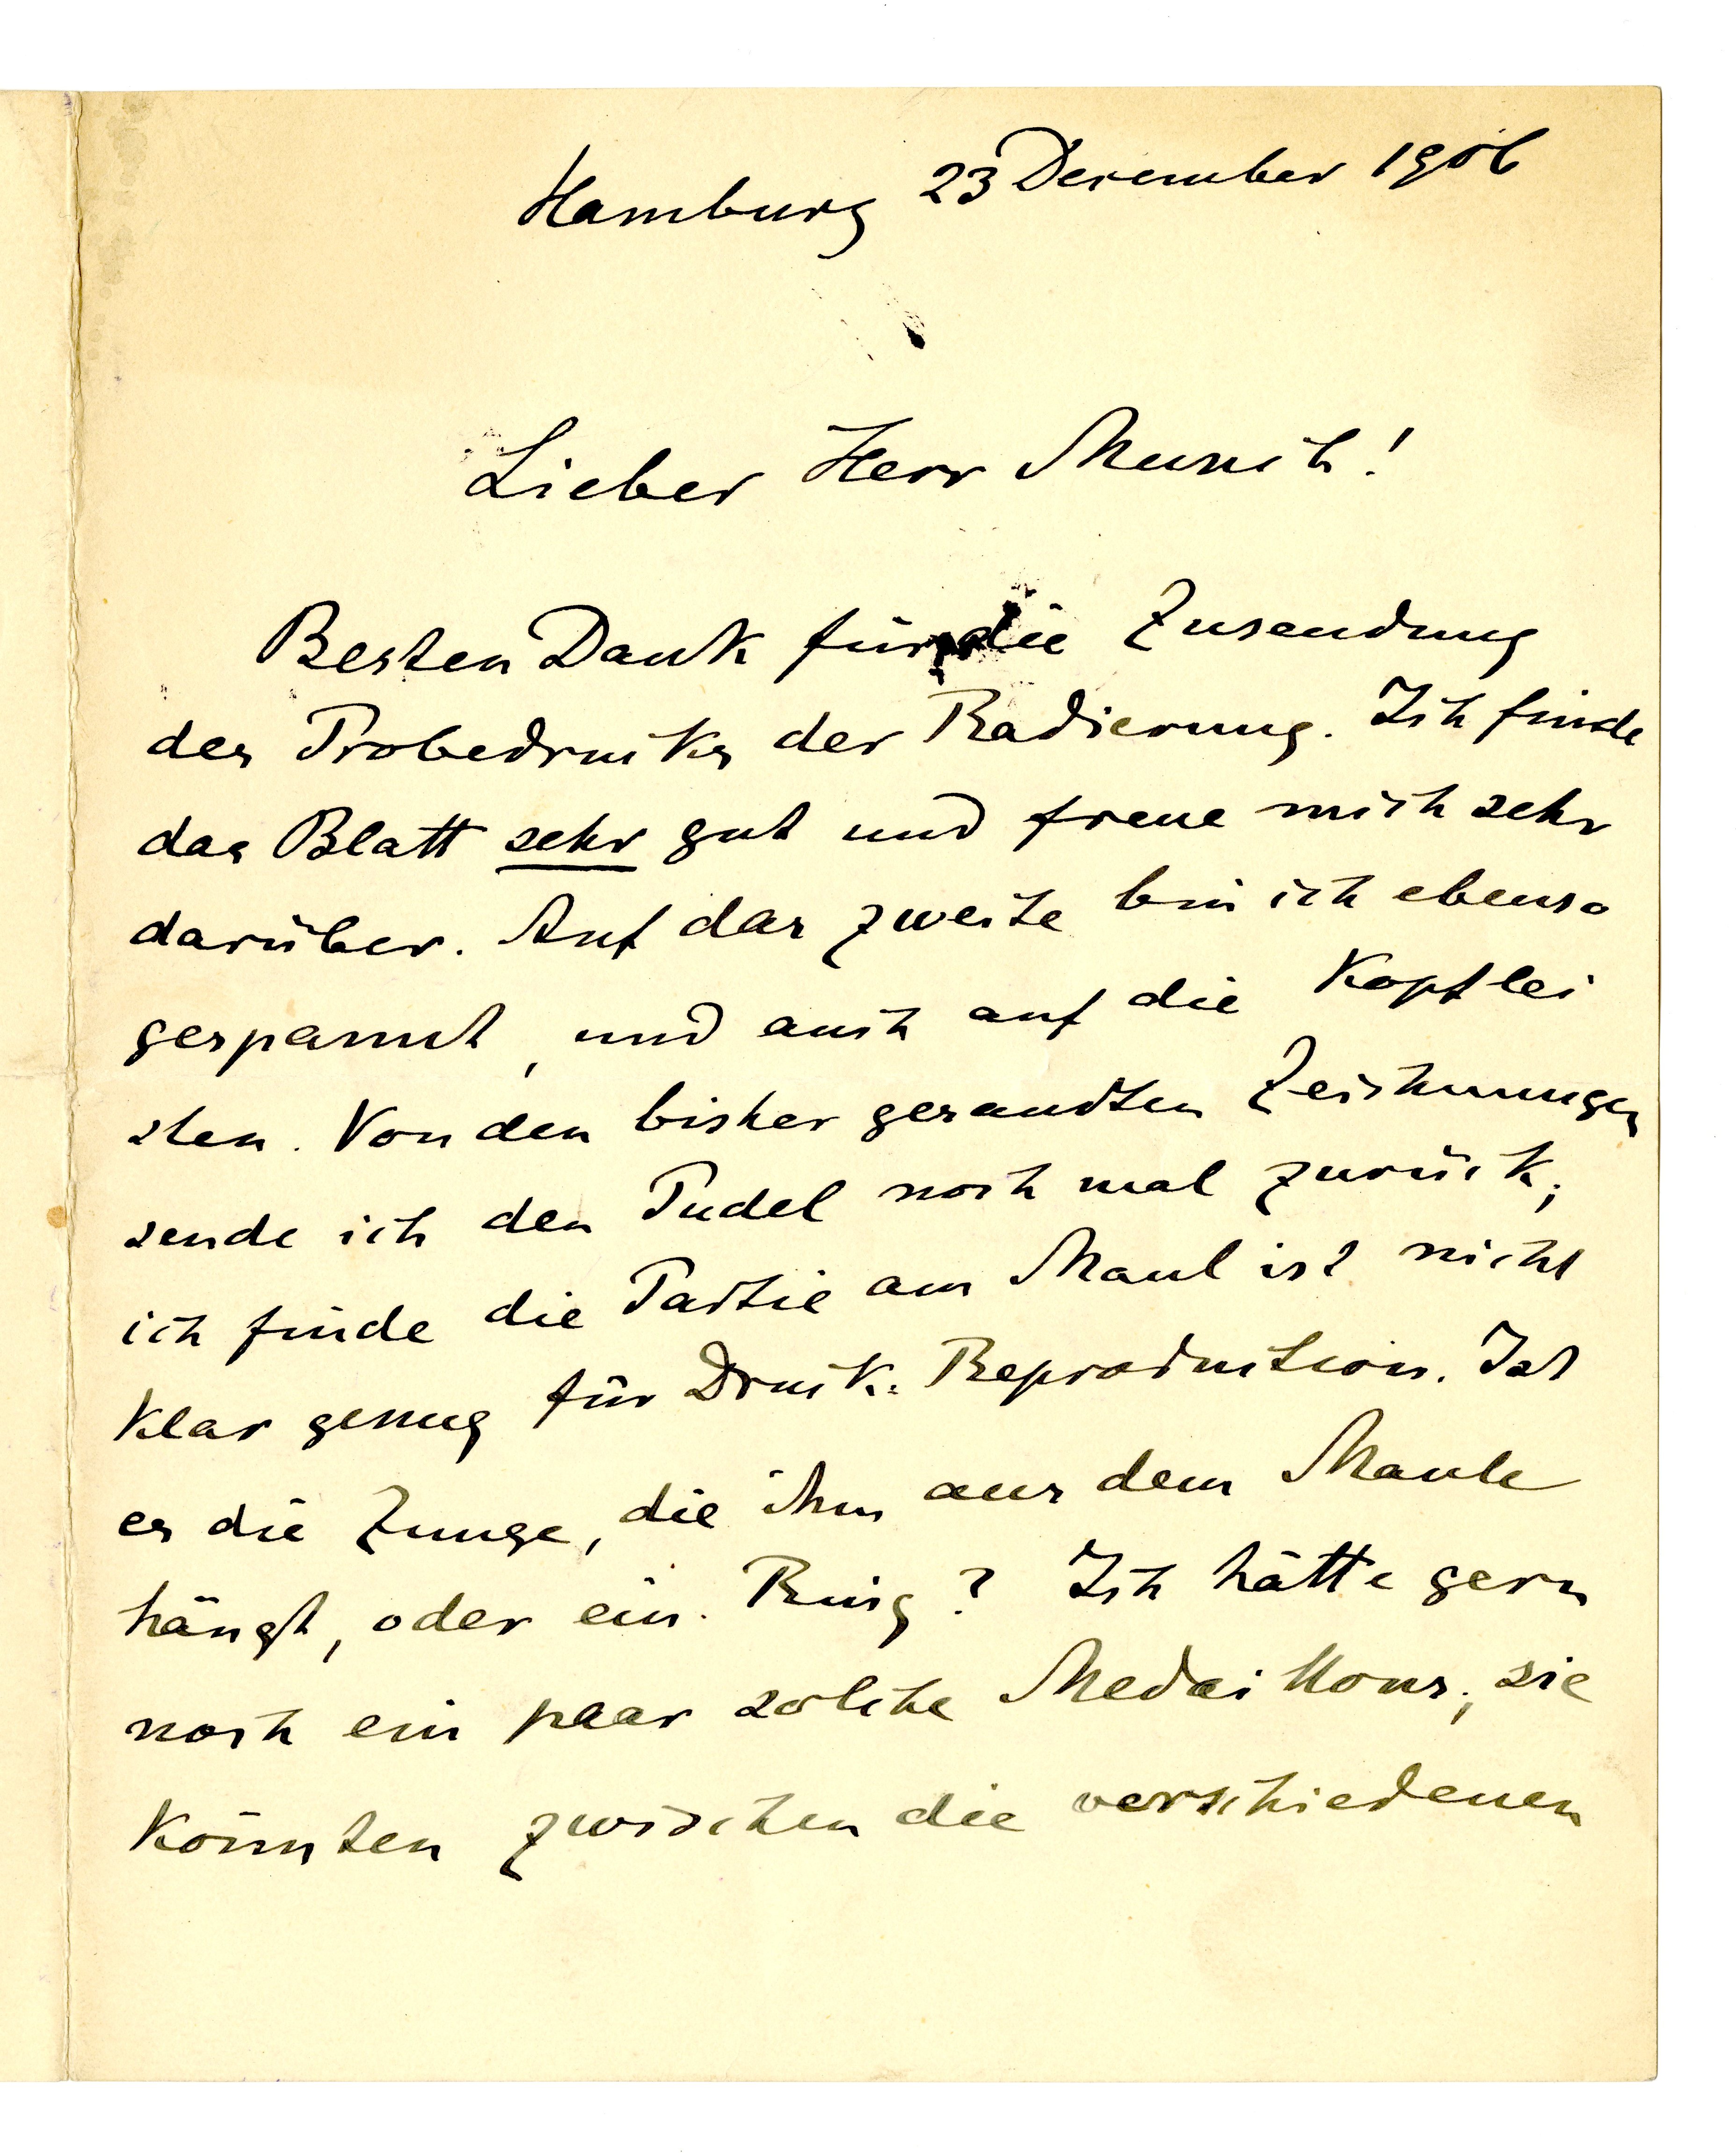 Hamburg 23 December 1906
Lieber Herr Munch!
Besten Dank für die Zusendung
des Probedrucks der Radierung. Ich finde
das Blatt sehr gut und freue mich sehr
darüber. Auf das zweite bin ich ebenso
gespannt, und auch auf die Kopflei
sten. Von den bisher gesandten Zeichnungen
sende ich den Pudel noch mal zurück;
ich finde die Partie am Maul ist nicht
klar genug für Druck-Reproduction. Ist
es die Zunge, die ihm aus dem Maule
hängt, oder ein Ring? Ich hätte gern
noch ein paar solche Medaillons; sie
könnten zwischen die verschiedenen